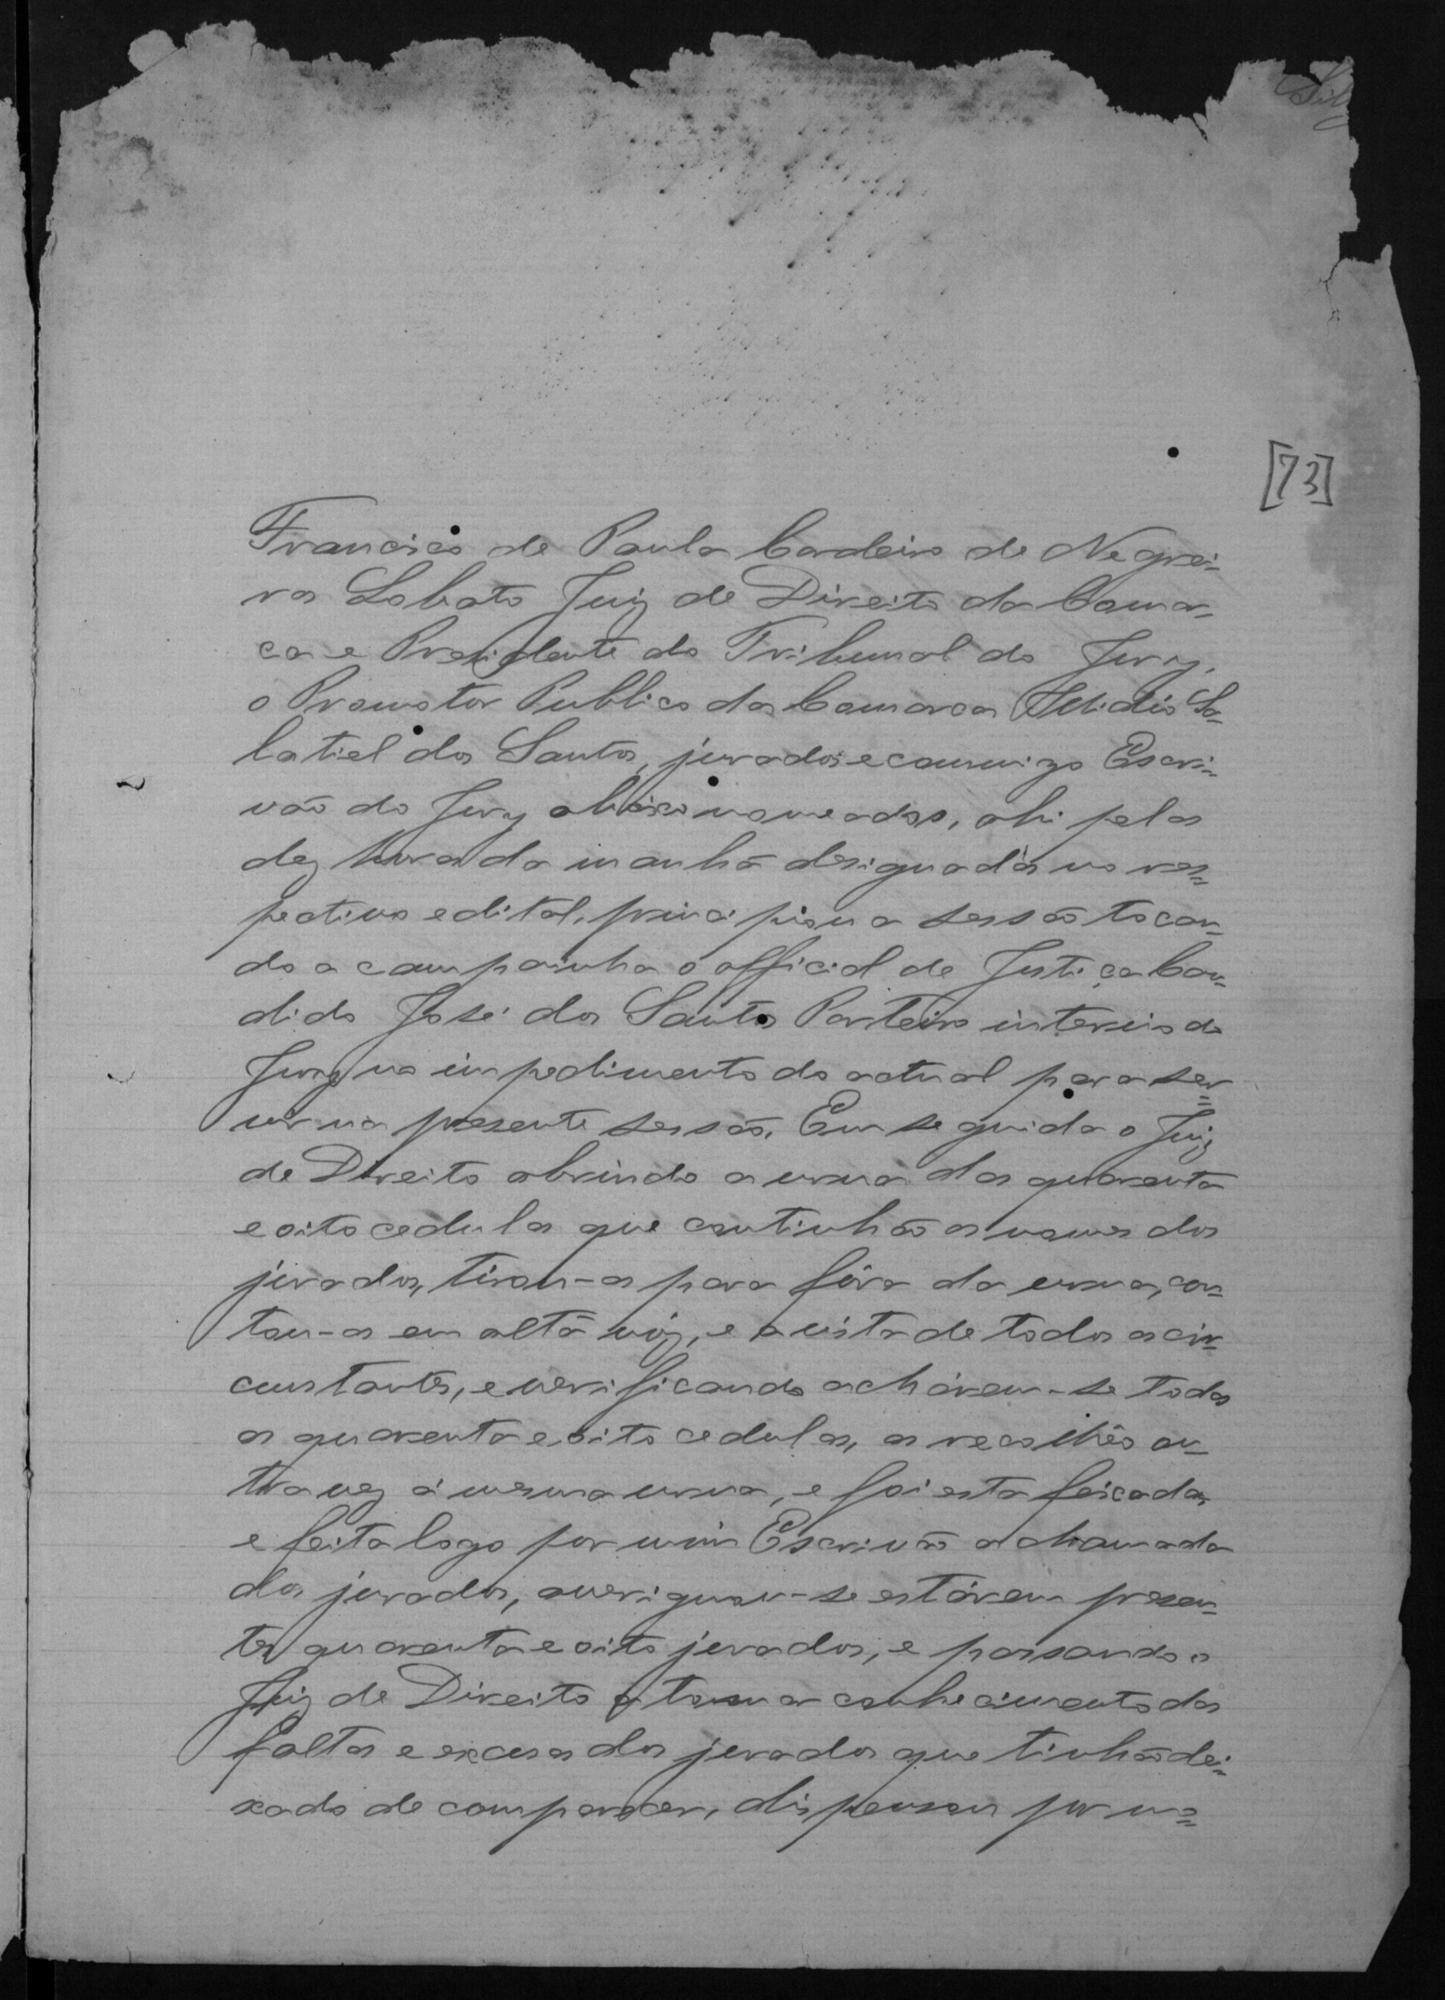 [73]
Francisco de Paula Cordeiro de Negrei-
ros Lobato Juiz de Direito da Comar-
ca e Presidente do Tribunal do Jury,
o Promotor Publico da Comarca Sa-
latiel dos Santos, jurados e commigo Escri-
vão do Jury abaixo nomeados, ahi pelas
dez horas da manhã designadas no res-
pectivo edital, principiou a sessão tocan-
do a campainha o official de Justiça Can-
dido José dos Santos Porteiro interino do
Jury no impedimento do actual para ser-
vir na presente sessão. Em seguida o Juiz
de Direito abrindo a urna das quarenta
e oito cedulas que continhão os nomes dos
jurados, tirou-as para fóra da urna, con-
tou-as em alta vóz, e a vista de todos os cir-
cunstantes, e verificando achárem-se todas
as quarenta e oito cedulas, as recolhêo ou-
tra vez á mesma urna, e foi esta feixada,
e feita logo por mim Escrivão a chamada
dos jurados, averiguou-se estárem presen-
tes quarenta e oito jurados, e passando o
Juiz de Direito a tomar conhecimento das
faltas e excusas dos jurados que tinhão dei-
xado de comparecer, dispensou por no-